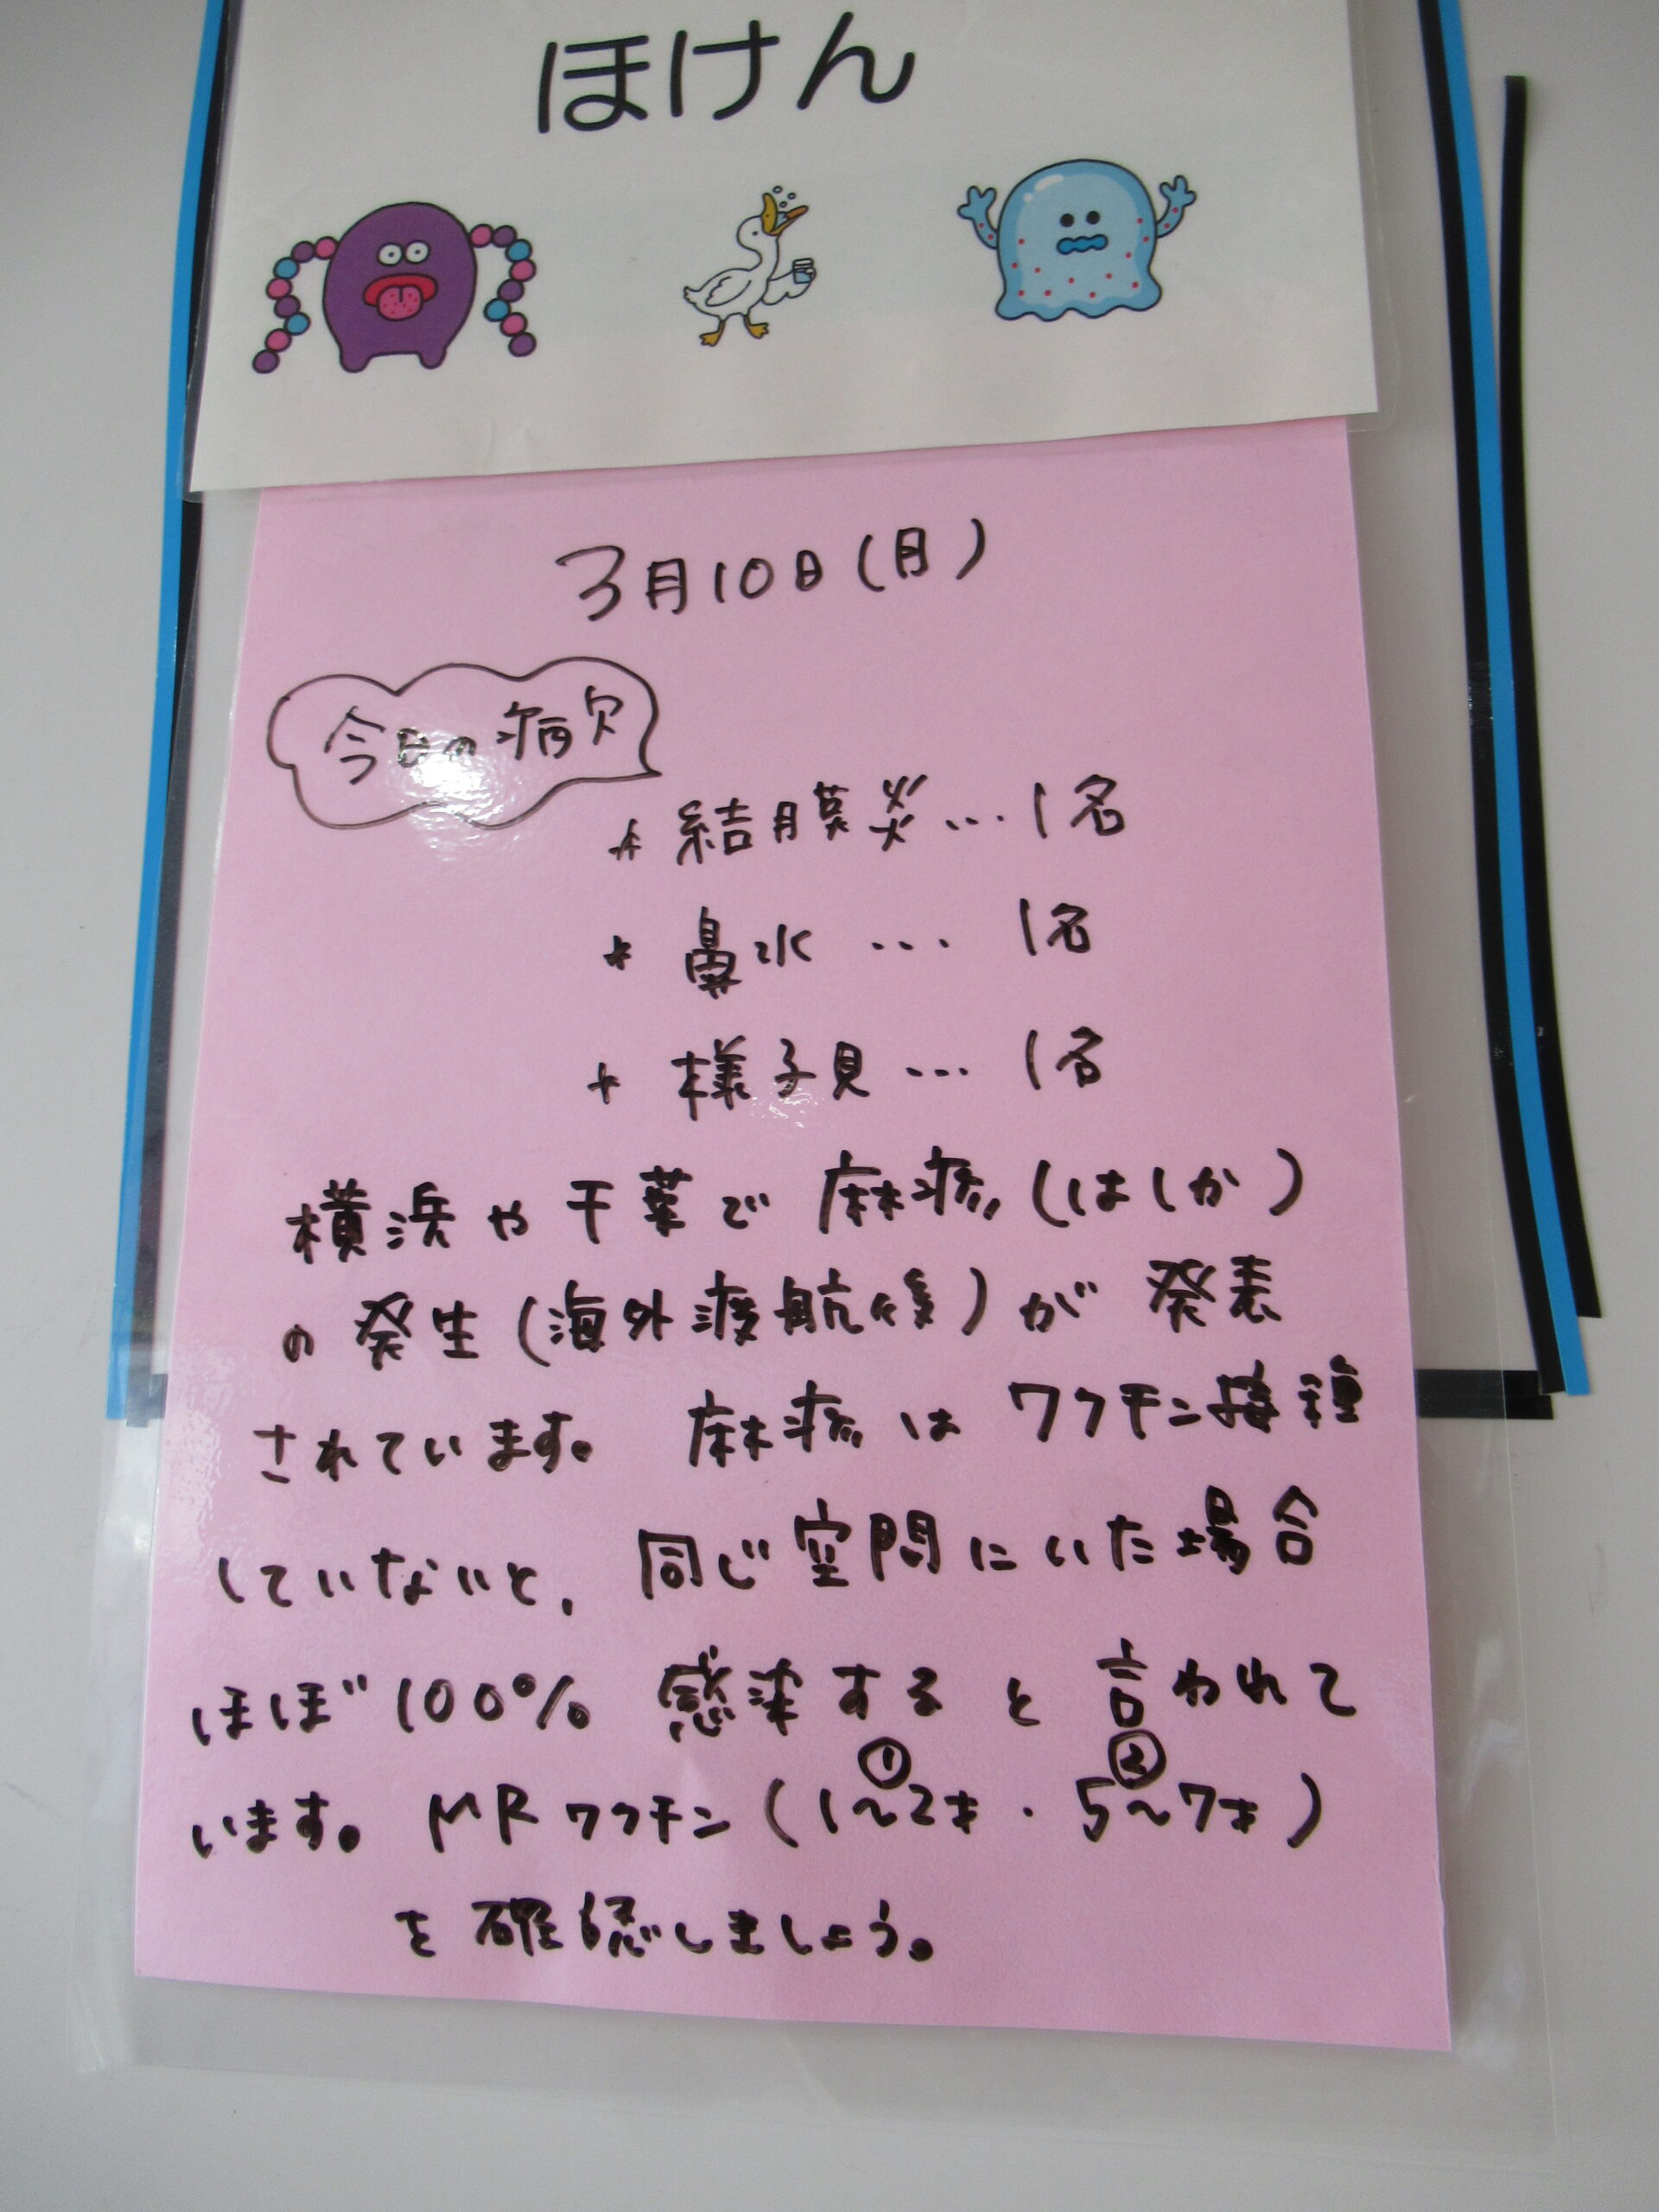 ほけん
3月10日(月)
今日の病欠
* 結膜炎… 1名
* 鼻水 … 1名
* 様子見 … 1名
横浜や千葉で 麻疹(はしか)
の発生(海外渡航後)が 発表
されています。 麻疹は ワクチン接種
していないと、同じ空間にいた場合
ほぼ100% 感染すると言われて
① ②
います。 MRワクチン(1〜2才・5〜7才)
を確認しましょう。